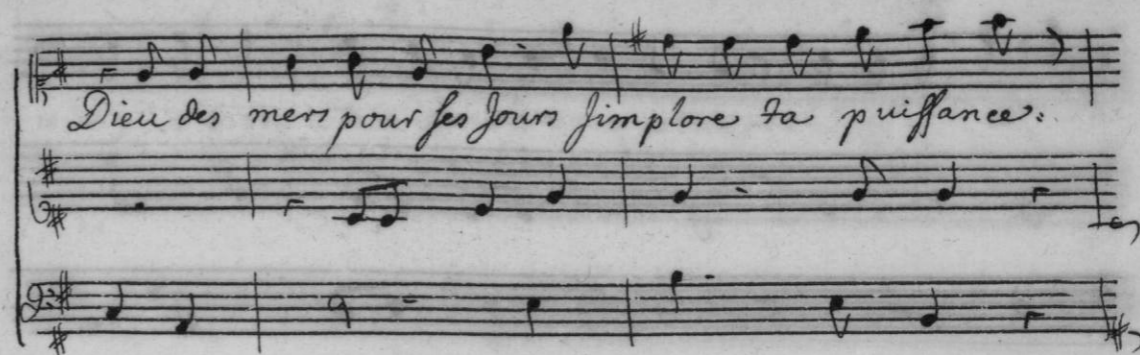 Dieu des mers pour ses Jours J'implore ta puissance: